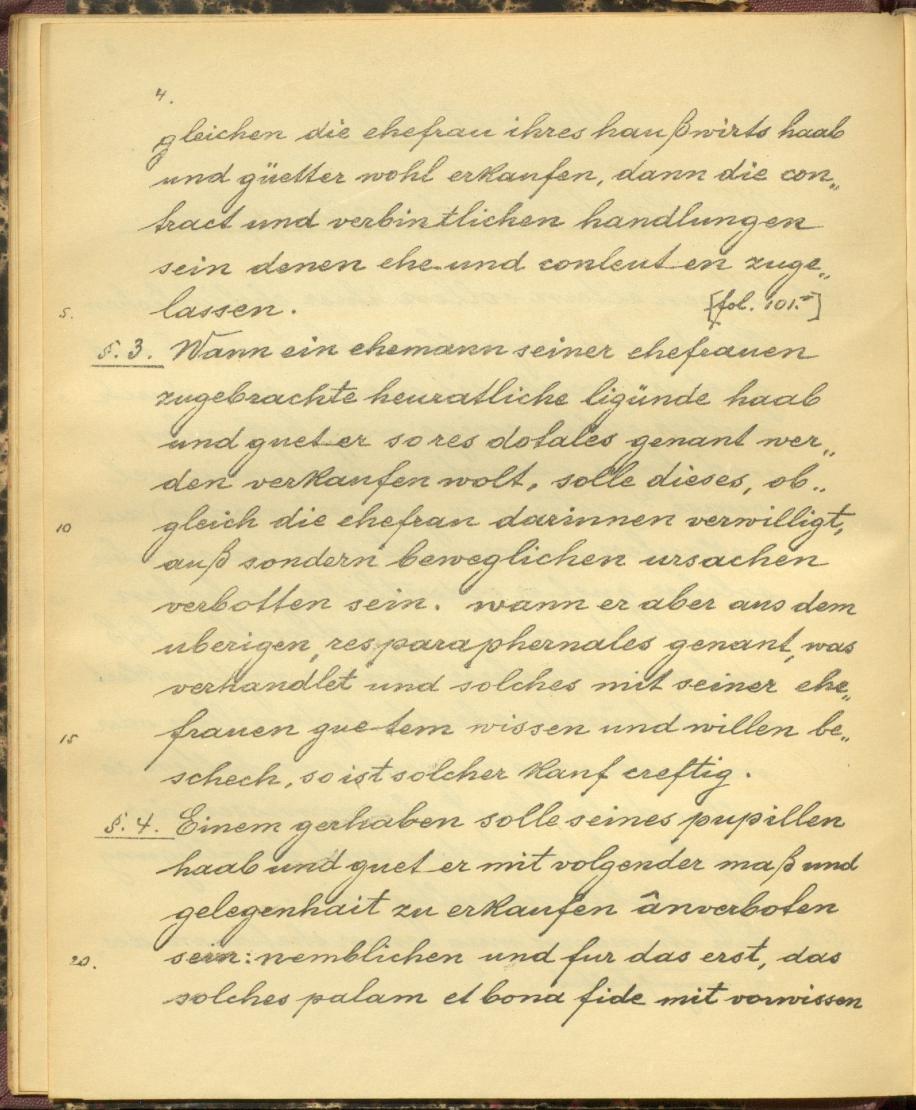 4.
gleichen die ehefrau ihres haußwirts haab
und güetter wohl erkaufen, dann die con„
tract und verbintlichen handlungen
sein denen ehe und conleuten zuge„
5. lassen. [fol. 101.r]
§. 3. Wann ein ehemann seiner ehefrauen
zugebrachte heuratliche ligünde haab
und gueter so res dotales genant wer„
den verkaufen wolt, solle dieses, ob„
10 gleich die ehefrau darinnen verwilligt,
auß sondern beweglichen ursachen
verbotten sein. wann er aber aus dem
uberigen, res paraphernales genant, was
verhandlet und solches mit seiner ehe„
15 frauen guetem wissen und willen be„
schech, so ist solcher kauf creftig.
§. 4. Einem gerhaben solle seines pupillen
haab und gueter mit volgender maß und
gelegenhait zu erkaufen ânverboten
20. sein: nemblichen und fur das erst, das
solches palam et bona fide mit vorwissen